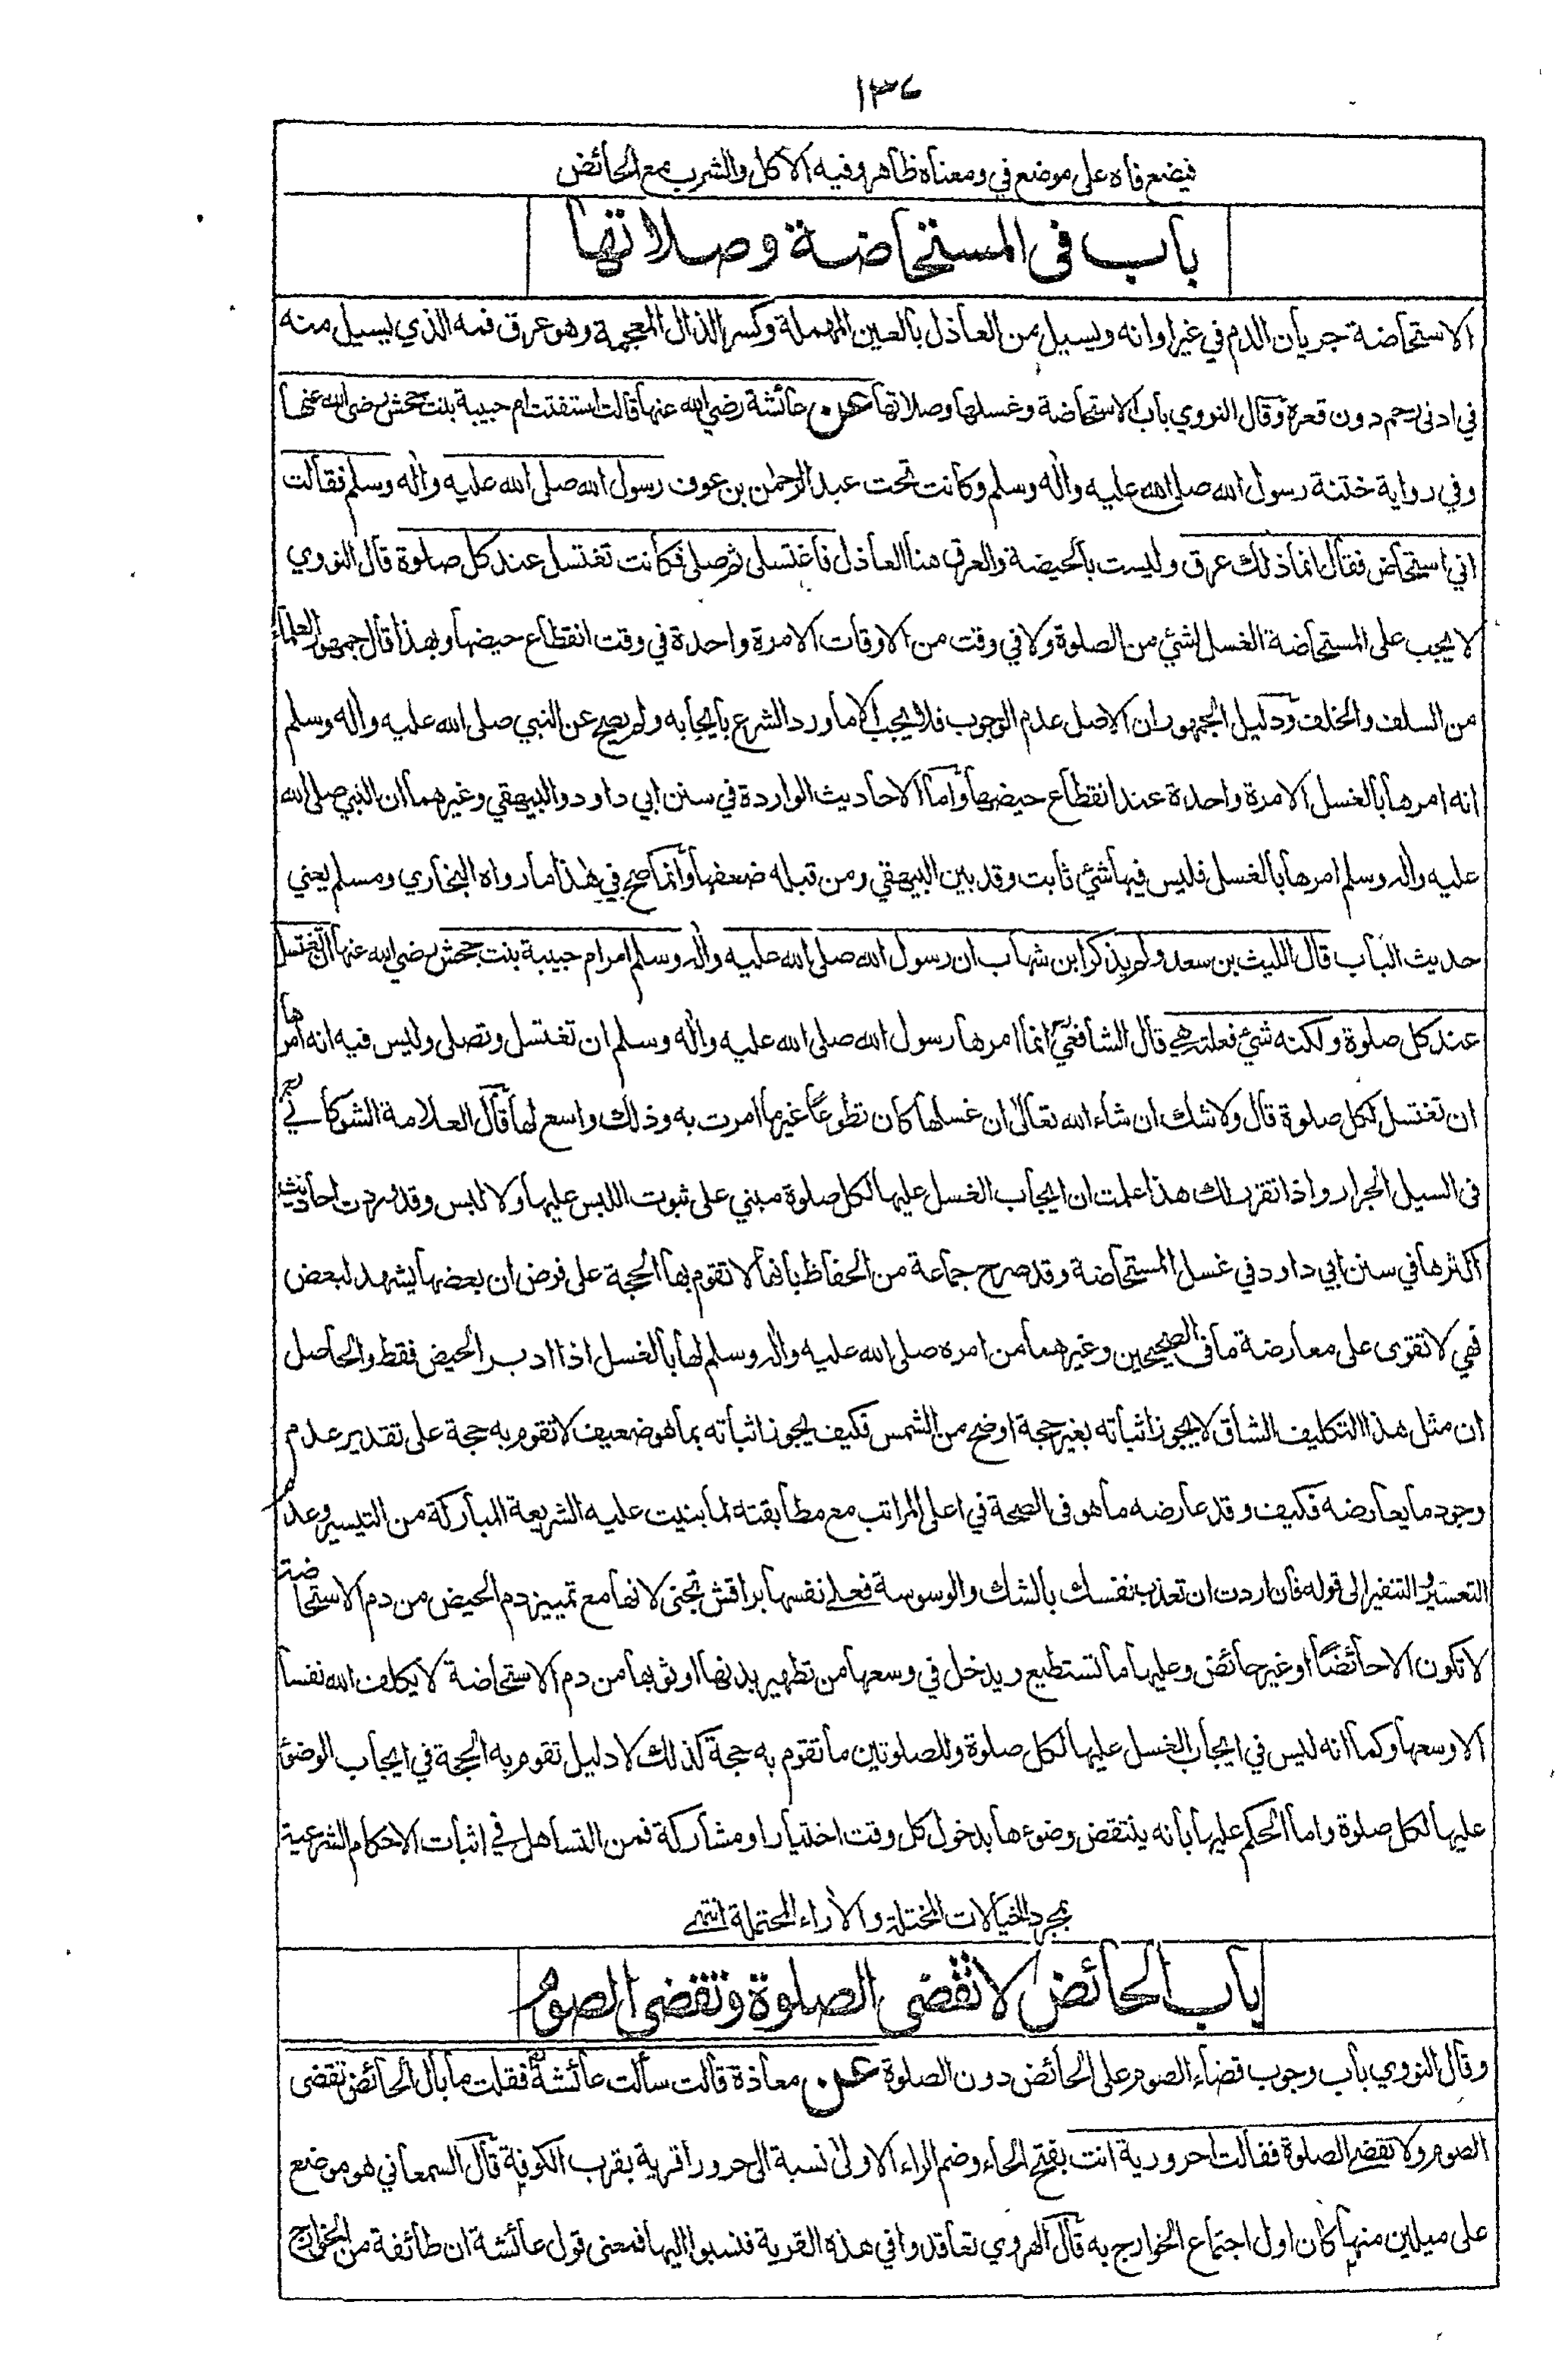 ١٣٤
فيضع فاه على موضع في ومعناه ظاهر وفيه الاكل والشرب مع الحائض
باب في المستحاضة وصلاتها
الاستحاضة جريان الدم في غير اوانه ويسيل من العاذل بالعين المهملة وكسر الذال المعجمة وهو عرق فمه الذي يسيل منه
في ادنى رحم دون قعره وقال النووي باب الاستحاضة وغسلها وصلاتها عن عائشة رضي الله عنها قالت استفتت ام حبيبة بنت جحش رضي الله عنها
وفي رواية ختنة رسول الله صلى الله عليه واٰله وسلم وكانت تحت عبد الرحمٰن بن عوف رسول الله صلى الله عليه واٰله وسلم فقالت
اني استحاض فقال انما ذلك عرق وليست بالحيضة والعرق هنا العاذل فاغتسلى ثم صلى فكانت تغتسل عند كل صلوة قال النووي
لا يجب على المستحاضة الغسل لشئ من الصلوة ولا في وقت من الاوقات الا مرة واحدة في وقت انقطاع حيضها وبهذا قال جمهور العلماء
من السلف والخلف ودليل الجمهور ان الاصل عدم الوجوب فلا يجب الا ما ورد الشرع بايجابه ولم يصح عن النبي صلى الله عليه واٰله وسلم
انه امرها بالغسل الا مرة واحدة عند انقطاع حيضها واما الاحاديث الواردة في سنن ابي داود والبيهقي وغيرهما ان النبي صلى الله
عليه واٰله وسلم امرها بالغسل فليس فيها شئ ثابت وقد بين البيهقي ومن قبله ضعفها وانما صح في هٰذا ما رواه البخاري ومسلم يعني
حديث الباب قال الليث بن سعد ولم يذكر ابن شهاب ان رسول الله صلى الله عليه واٰله وسلم امر ام حبيبة بنت جحش رضي الله عنها ان تغتسل
عند كل صلوة ولكنه شئ فعلته هي قال الشافعي انما امرها رسول الله صلى الله عليه واٰله وسلم ان تغتسل وتصلى وليس فيه انه امرها
ان تغتسل لكل صلوة قال ولا شك ان شاء الله تعالىٰ ان غسلها كان تطوعًا غير ما امرت به وذلك واسع لها قال العلامة الشوكاني
فى السيل الجرار واذا تقرر لك هذا علمت ان ايجاب الغسل عليها لكل صلوة مبني على ثبوت اللبس عليها ولا لبس وقد وردت احاديث
اكثرها في سنن ابي داود في غسل المستحاضة وقد صرح جماعة من الحفاظ بانها لا تقوم بها الحجة على فرض ان بعضها يشهد لبعض
فهي لا تقوى على معارضة ما فى الصحيحين وغيرهما من امره صلى الله عليه واٰله وسلم لها بالغسل اذا ادبر الحيض فقط والحاصل
ان مثل هذا التكليف الشاق لا يجوز اثباته بغير حجة اوضح من الشمس فكيف يجوز اثباته بما هو ضعيف لا تقوم به حجة على تقدير عدم
وجود ما يعارضه فكيف وقد عارضه ما هو فى الصحة في اعلى المراتب مع مطابقته لما بنيت عليه الشريعة المباركة من التيسير وعدم
التعسير والتنفير الى قوله فان اردت ان تعذب نفسك بالشك والوسوسة فعلى نفسها براقش تجنى لانها مع تمييز دم الحيض من دم الاستحاضة
لا تكون الا حائضًا او غير حائض وعليها ما تستطيع ويدخل في وسعها من تطهير بدنها او ثوبها من دم الاستحاضة لا يكلف الله نفسا
الا وسعها وكما انه ليس في ايجاب الغسل عليها لكل صلوة وللصلوتين ما تقوم به حجة كذلك لا دليل تقوم به الحجة في ايجاب الوضوء
عليها لكل صلوة واما الحكم عليها بانه ينتقض وضوءها بدخول كل وقت اختيار او مشاركة فمن التساهل في اثبات الاحكام الشرعية
بمجرد الخيالات المختلة والاٰراء المحتملة انتهى
باب الحائض لا تقضى الصلوة وتقضى الصوم
وقال النووي باب وجوب قضاء الصوم على الحائض دون الصلوة عن معاذة قالت سألت عائشة فقلت ما بال الحائض تقضى
الصوم ولا تقضى الصلوة فقالت احرورية انت بفتح الحاء وضم الراء الاولىٰ نسبة الى حرورا قرية بقرب الكوفة قال السمعاني هو موضع
على ميلين منها كان اول اجتماع الخوارج به قال الهروي تعاقدوا في هذه القرية فنسبوا اليها فمعنى قول عائشة ان طائفة من الخوارج